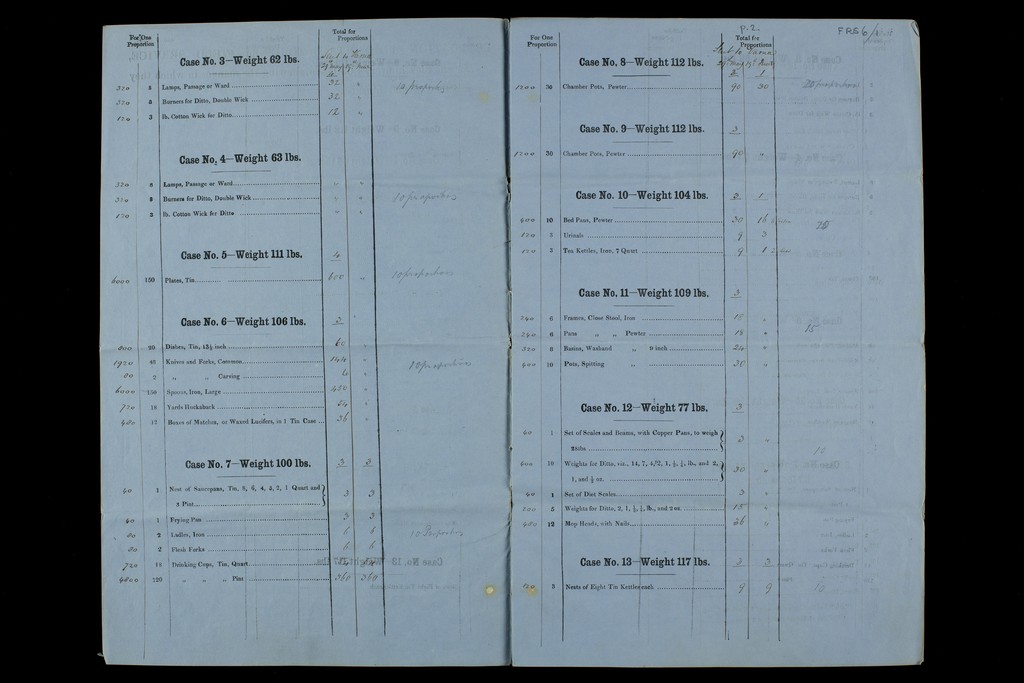 For One Proportion
Total for Proportions
Case No. 3—Weight 62 lbs.
320 8 Lamps, Passage or Ward 32 "
10 proportions
320 8 Burners for Ditto, Double Wick 32 "
120 3 lb. Cotton Wick for Ditto 12 "
Case No. 4—Weight 63 lbs.
320 8 Lamps, Passage or Ward " "
320 8 Burners for Ditto, Double Wick " "
10 proportions
120 3 lb. Cotton Wick for Ditto " "
Case No. 5—Weight 111 lbs.
4
6000 150 Plates, Tin 600 "
10 proportions
Case No. 6—Weight 106 lbs.
3
800 20 Dishes, Tin, 13½ inch 60
1920 48 Knives and Forks, Common 144 "
10 proportions
80 2 " " Carving 6 "
6000 150 Spoons, Iron, Large 450 "
720 18 Yards Huckaback 54 "
480 12 Boxes of Matches, or Waxed Lucifers, in 1 Tin Case 36 "
Case No. 7—Weight 100 lbs.
3 3
40 1 Nest of Saucepans, Tin, 8, 6, 4, 3, 2, 1 Quart and
3 Pint 3 3
40 1 Frying Pan 3 3
80 2 Ladles, Iron 6 6
10 Proportions
80 2 Flesh Forks 6 6
720 18 Drinking Cups, Tin, Quart
4800 120 " " " Pint 360 360
p.2.
FRS6/1
For One Proportion
Total for Proportions
Case No. 8—Weight 112 lbs.
1200 30 Chamber Pots, Pewter 90 30
Case No. 9—Weight 112 lbs.
3
1200 30 Chamber Pots, Pewter 90 "
Case No. 10—Weight 104 lbs.
3 1
400 10 Bed Pans, Pewter 30 16
120 3 Urinals 9 3
3 Tea Kettles, Iron, 7 Quart 9 1
Case No. 11—Weight 109 lbs.
3
240 6 Frames, Close Stool, Iron 18 "
15
240 6 Pans " " Pewter 18 "
320 8 Basins, Washand " 9 inch 24 "
400 10 Pots, Spitting " 30 "
Case No. 12—Weight 77 lbs.
3
40 1 Set of Scales and Beams, with Copper Pans, to weigh
28lbs 3 "
10
400 10 Weights for Ditto, viz., 14, 7, 4, 2, 1, ½, ¼, lb., and 2,
1, and ½ oz. 30 "
40 1 Set of Diet Scales 3 "
200 5 Weights for Ditto, 2, 1, ½, ¼, lb., and 2 oz. 15 "
480 12 Mop Heads, with Nails 36 "
Case No. 13—Weight 117 lbs.
3 3
120 3 Nests of Eight Tin Kettles each 9 9
10